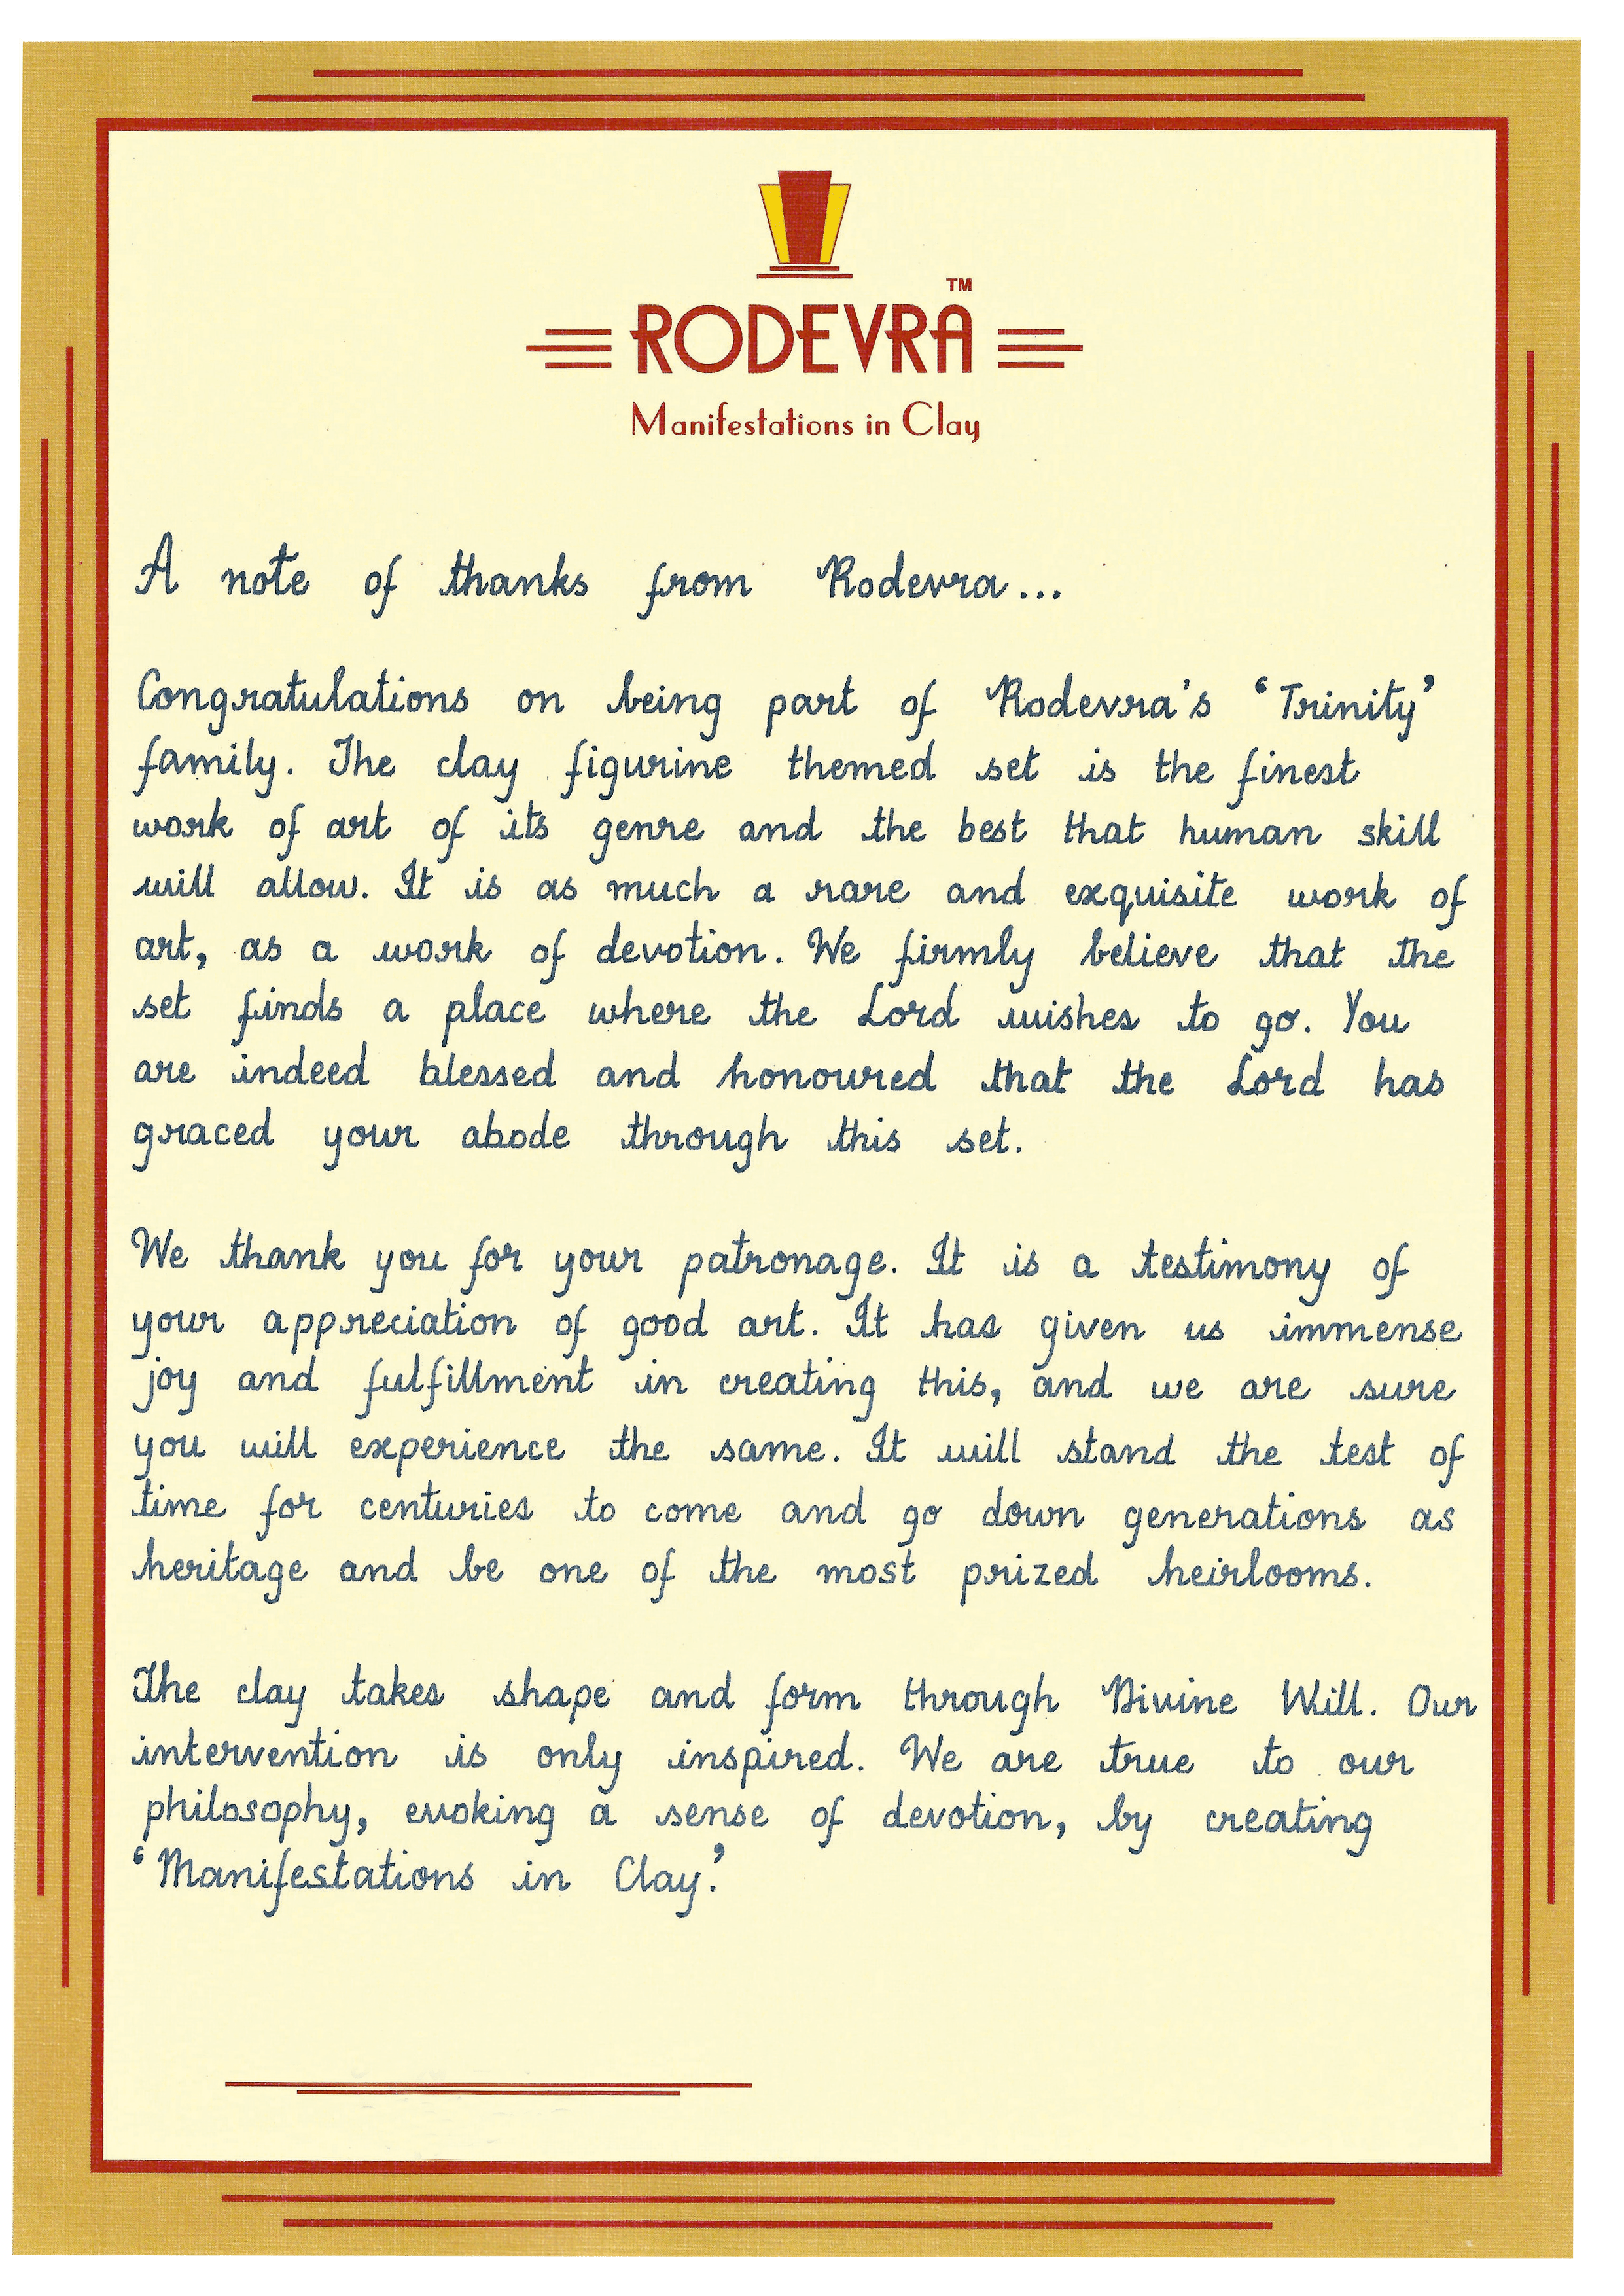 TM
RODEVRA
Manifestations in Clay
A note of thanks from Rodevra...
Congratulations on being part of Rodevra's 'Trinity'
family. The clay figurine themed set is the finest
work of art of its genre and the best that human skill
will allow. It is as much a rare and exquisite work of
art, as a work of devotion. We firmly believe that the
set finds a place where the Lord wishes to go. You
are indeed blessed and honoured that the Lord has
graced your abode through this set.
We thank you for your patronage. It is a testimony of
your appreciation of good art. It has given us immense
joy and fulfillment in creating this, and we are sure
you will experience the same. It will stand the test of
time for centuries to come and go down generations as
heritage and be one of the most prized heirlooms.
The clay takes shape and form through Divine Will. Our
intervention is only inspired. We are true to our
philosophy, evoking a sense of devotion, by creating
'Manifestations in Clay.'